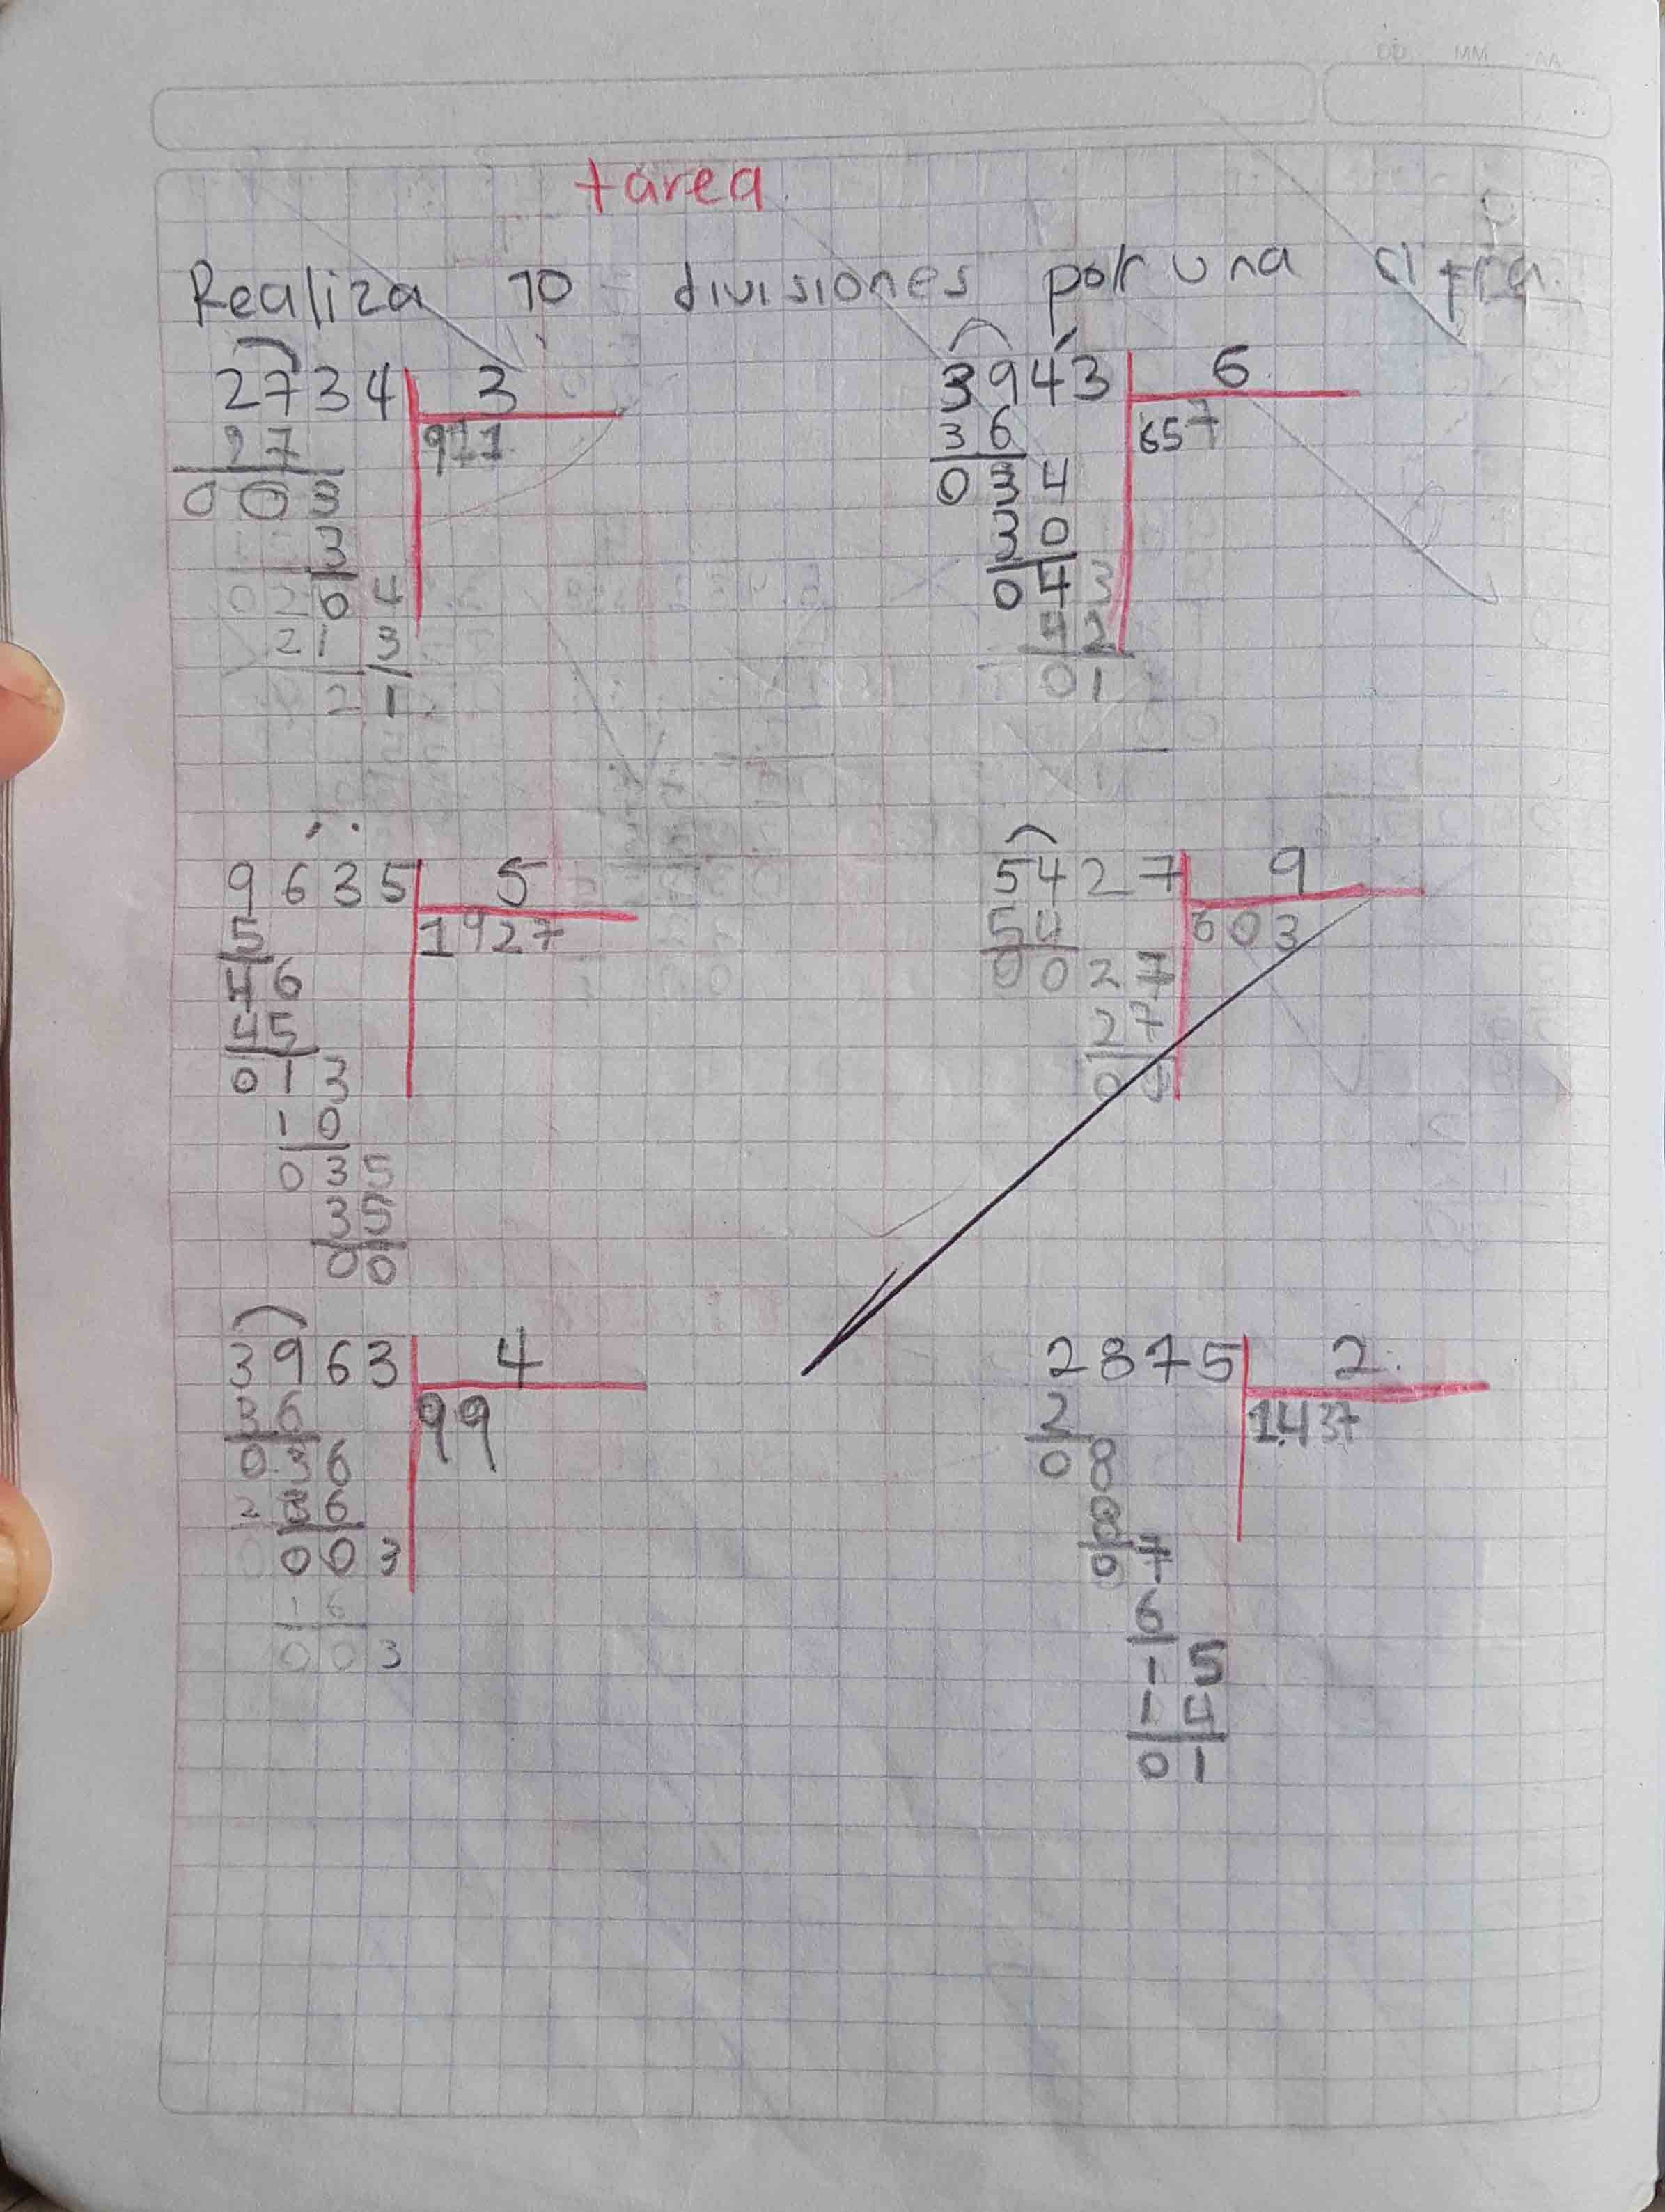 DD MM AA
tarea
Realiza 10 divisiones por una cifra.
2734 3
27 911
003
3
04
3
1
3943 6
36 657
034
30
043
42
01
9635 5
5 1927
46
45
013
10
035
35
00
5427 9
54 603
0027
27
00
3963 4
36 99
036
36
003
16
003
2875 2
2 1437
08
8
07
6
15
14
01